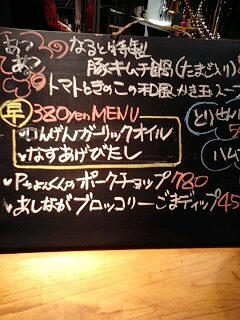 あつあつ なると特製
豚キムチ鍋(たまご入り)
トマトときのこの和風かき玉スープ
早 380yen MENU
いんげんガーリックオイル
なすあげびたし
とりせ
ハム
Pちゃんくんのポークチョップ 780
あしながブロッコリーごまディップ 45